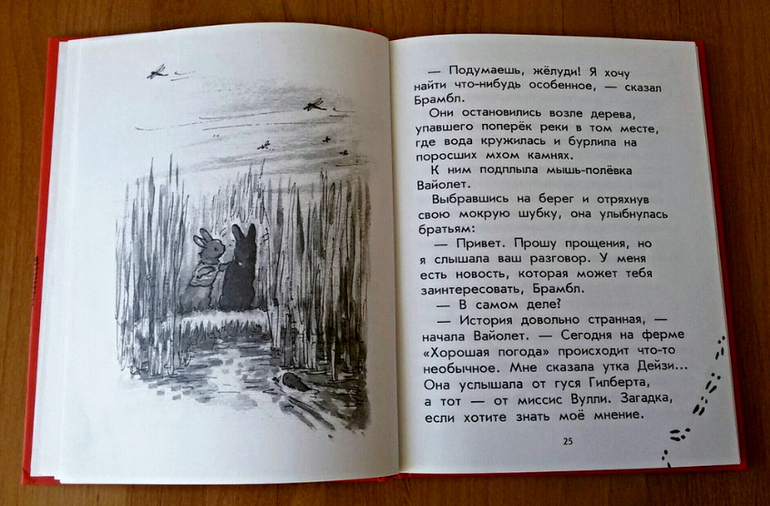 — Подумаешь, жёлуди! Я хочу
найти что-нибудь особенное, — сказал
Брамбл.
Они остановились возле дерева,
упавшего поперёк реки в том месте,
где вода кружилась и бурлила на
поросших мхом камнях.
К ним подплыла мышь-полёвка
Вайолет.
Выбравшись на берег и отряхнув
свою мокрую шубку, она улыбнулась
братьям:
— Привет. Прошу прощения, но
я слышала ваш разговор. У меня
есть новость, которая может тебя
заинтересовать, Брамбл.
— В самом деле?
— История довольно странная, —
начала Вайолет. — Сегодня на ферме
«Хорошая погода» происходит что-то
необычное. Мне сказала утка Дейзи...
Она услышала от гуся Гилберта,
а тот — от миссис Вулли. Загадка,
если хотите знать моё мнение.
25